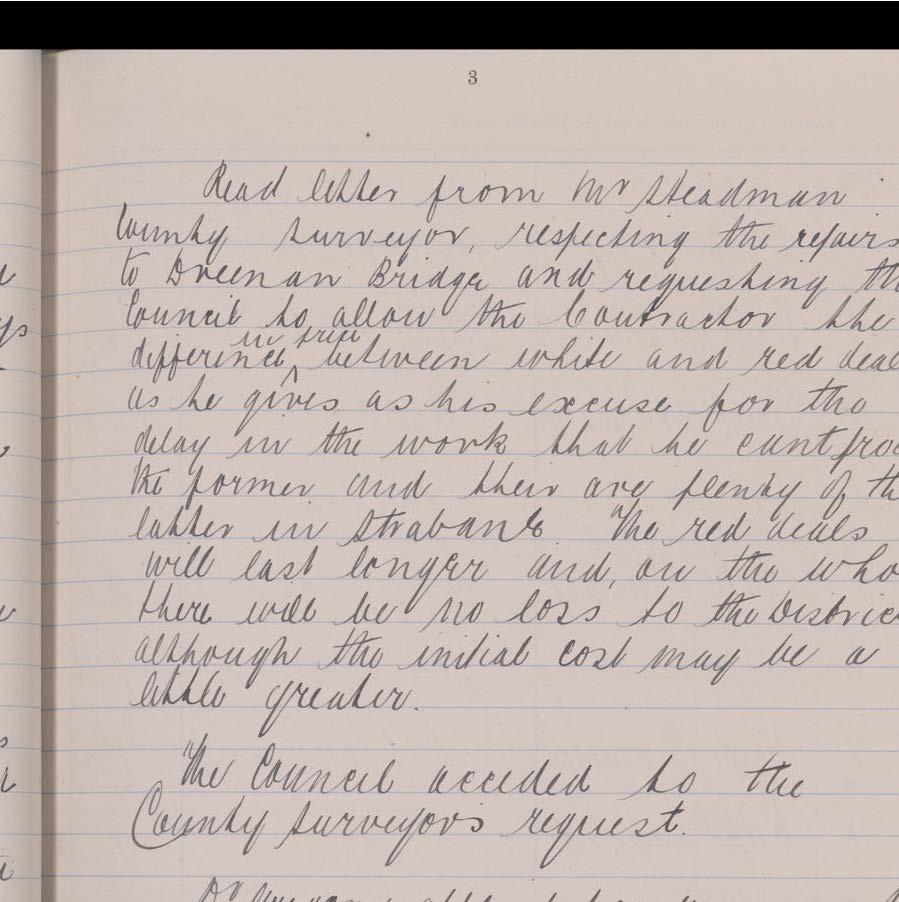 3
Read letter from Mr Steadman
County surveyor, respecting the repairs
to Dreenan Bridge and requesting th
Council to allow the Contractor the
in price
difference ^ between white and red deal
as he gives as his excuse for the
delay in the work that he cant proc
the former and their are plenty of th
latter in Strabane. The red deals
will last longer and, on the who
there will be no loss to the Distric
although the initial cost may be a
little greater.
The Council acceded to the
County surveyors request.